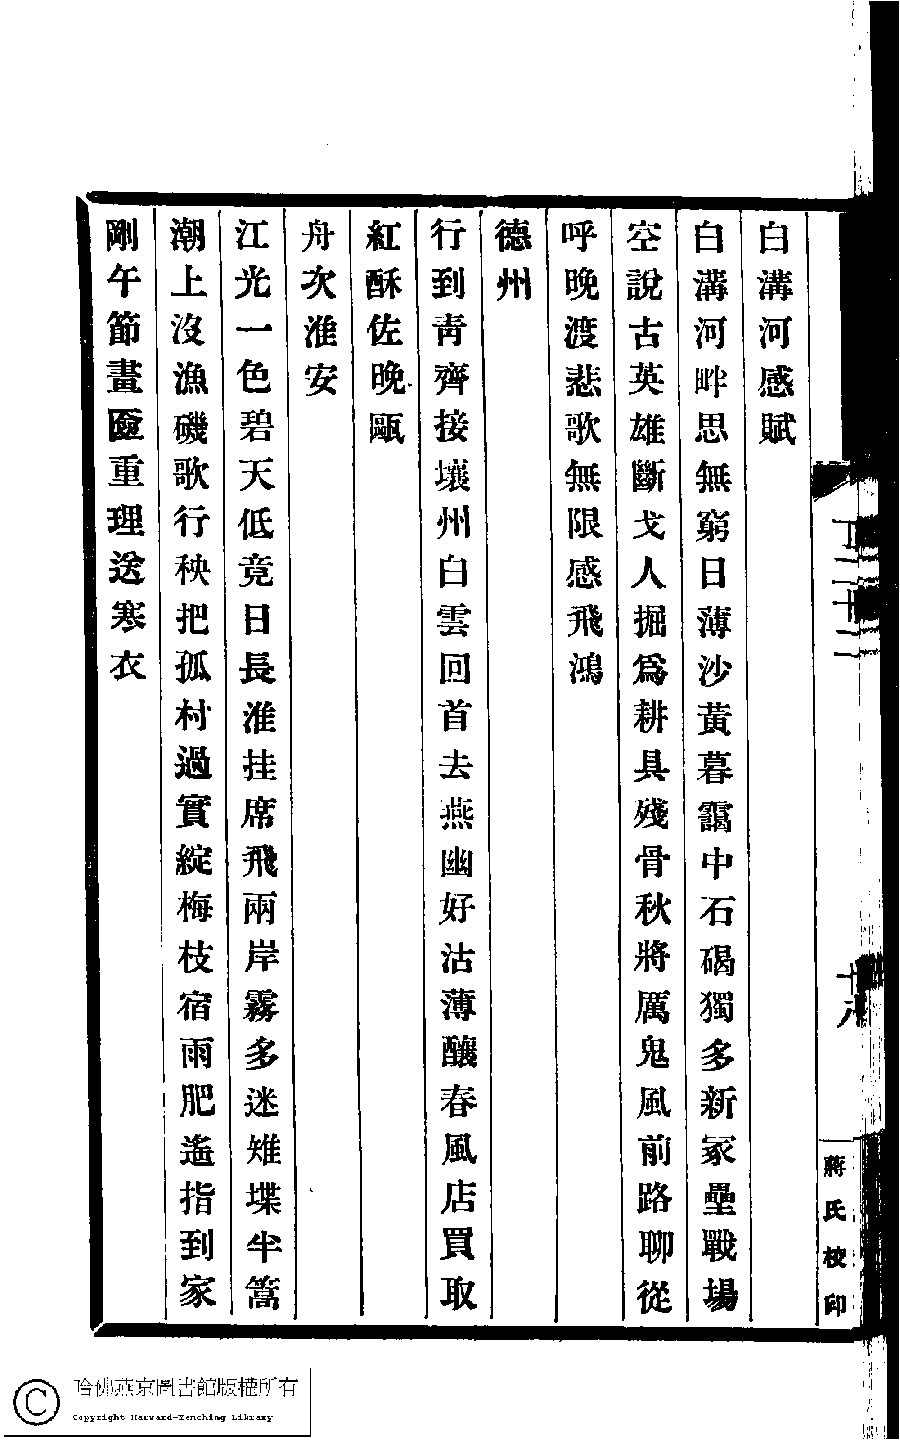 白溝河感賦
白溝河畔思無窮日薄沙黃暮靄中石碣獨多新冢壘戰場
空說古英雄斷戈人掘爲耕具殘骨秋將厲鬼風前路聊從
呼晚渡悲歌無限感飛鴻
德州
行到青齊接壤州白雲回首去燕幽好沽薄釀春風店買取
紅酥佐晚甌
舟次淮安
江光一色碧天低竟日長淮挂席飛兩岸霧多迷雉堞半篙
潮上沒漁磯歌行秧把孤村過實綻梅枝宿雨肥遙指到家
剛午節畫匳重理送寒衣
二十二
十八
蔣氏校印
哈佛燕京圖書館版權所有
Copyright Harvard-Yenching Library